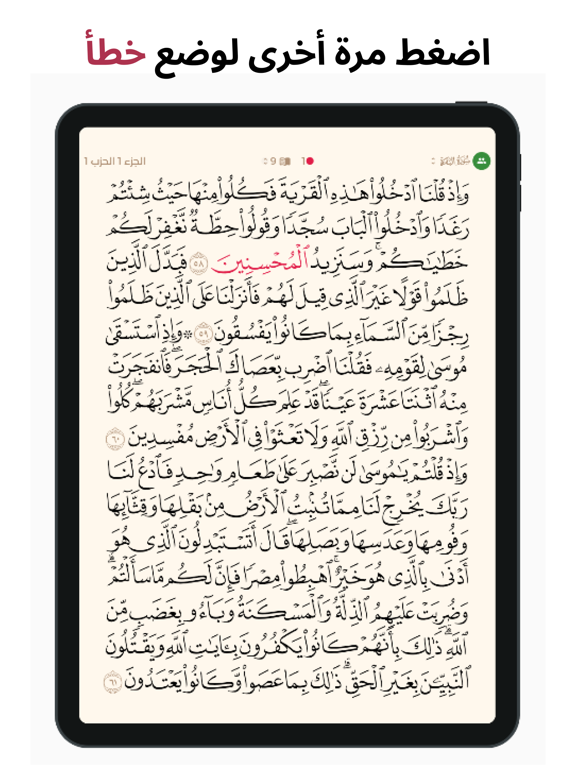 اضغط مرة أخرى لوضع خطأ
سورة البقرة 1 9 الجزء 1 الحزب 1
وَإِذْ قُلْنَا ادْخُلُوا هَٰذِهِ الْقَرْيَةَ فَكُلُوا مِنْهَا حَيْثُ شِئْتُمْ
رَغَدًا وَادْخُلُوا الْبَابَ سُجَّدًا وَقُولُوا حِطَّةٌ نَّغْفِرْ لَكُمْ
خَطَايَاكُمْ ۚ وَسَنَزِيدُ الْمُحْسِنِينَ ٥٨ فَبَدَّلَ الَّذِينَ
ظَلَمُوا قَوْلًا غَيْرَ الَّذِي قِيلَ لَهُمْ فَأَنزَلْنَا عَلَى الَّذِينَ ظَلَمُوا
رِجْزًا مِّنَ السَّمَاءِ بِمَا كَانُوا يَفْسُقُونَ ٥٩ ۞ وَإِذِ اسْتَسْقَىٰ
مُوسَىٰ لِقَوْمِهِ فَقُلْنَا اضْرِب بِّعَصَاكَ الْحَجَرَ ۖ فَانفَجَرَتْ
مِنْهُ اثْنَتَا عَشْرَةَ عَيْنًا ۖ قَدْ عَلِمَ كُلُّ أُنَاسٍ مَّشْرَبَهُمْ ۖ كُلُوا
وَاشْرَبُوا مِن رِّزْقِ اللَّهِ وَلَا تَعْثَوْا فِي الْأَرْضِ مُفْسِدِينَ ٦٠
وَإِذْ قُلْتُمْ يَا مُوسَىٰ لَن نَّصْبِرَ عَلَىٰ طَعَامٍ وَاحِدٍ فَادْعُ لَنَا
رَبَّكَ يُخْرِجْ لَنَا مِمَّا تُنبِتُ الْأَرْضُ مِن بَقْلِهَا وَقِثَّائِهَا
وَفُومِهَا وَعَدَسِهَا وَبَصَلِهَا ۖ قَالَ أَتَسْتَبْدِلُونَ الَّذِي هُوَ
أَدْنَىٰ بِالَّذِي هُوَ خَيْرٌ ۚ اهْبِطُوا مِصْرًا فَإِنَّ لَكُم مَّا سَأَلْتُمْ ۗ
وَضُرِبَتْ عَلَيْهِمُ الذِّلَّةُ وَالْمَسْكَنَةُ وَبَاءُو بِغَضَبٍ مِّنَ
اللَّهِ ۗ ذَٰلِكَ بِأَنَّهُمْ كَانُوا يَكْفُرُونَ بِآيَاتِ اللَّهِ وَيَقْتُلُونَ
النَّبِيِّينَ بِغَيْرِ الْحَقِّ ۗ ذَٰلِكَ بِمَا عَصَوا وَّكَانُوا يَعْتَدُونَ ٦١